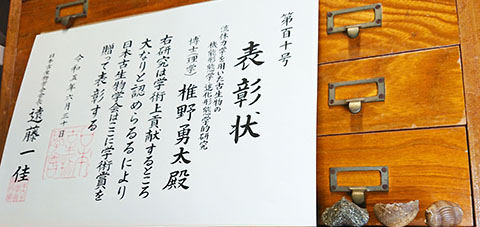 第百十号
表彰状
流体力学を用いた古生物の
機能形態学・進化形態学的研究
博士(理学) 椎野勇太殿
右研究は学術上貢献するところ
大なりと認めらるるにより
日本古生物学会はここに学術賞を
贈って表彰する
令和五年六月三十日
日本古生物学会会長 遠藤一佳